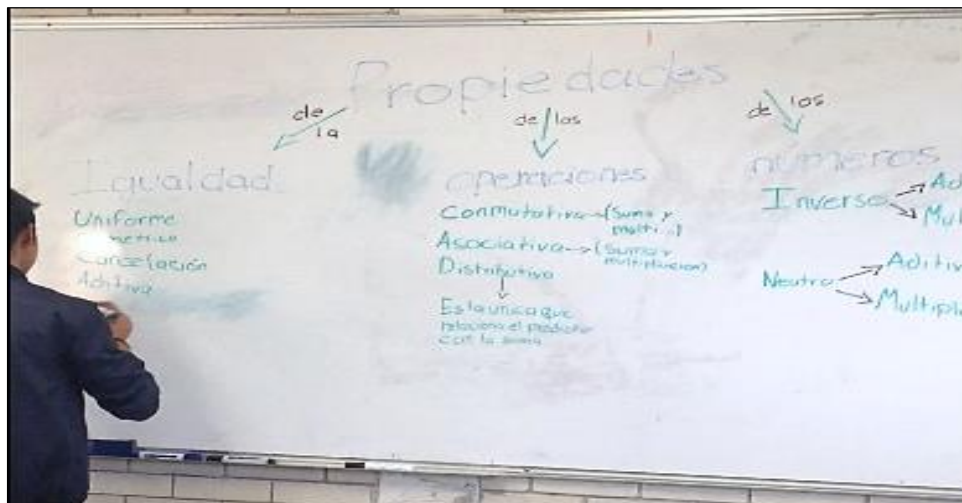 Propiedades
de la
Igualdad
Uniforme
Cancelación
Aditiva
de las
operaciones
Conmutativa → (Suma y
multi...)
Asociativa → (Suma y
multiplicacion)
Distributiva
Es la unica que
relaciona el producto
con la suma
de los
números
Inverso
Ad
Mul
Neutro
Aditiv
Multipl